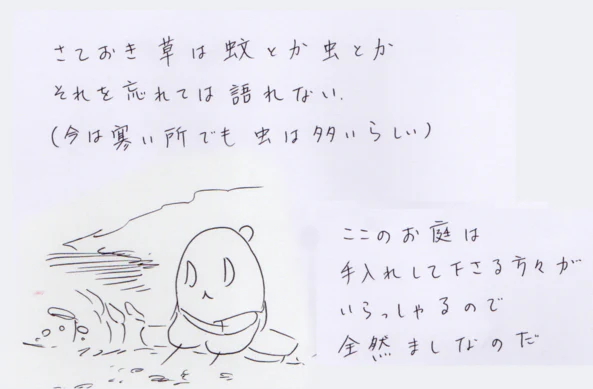 さておき草は蚊とか虫とか
それを忘れては語れない.
(今は寒い所でも虫は多いらしい)
ここのお庭は
手入れして下さる方々が
いらっしゃるので
全然ましなのだ